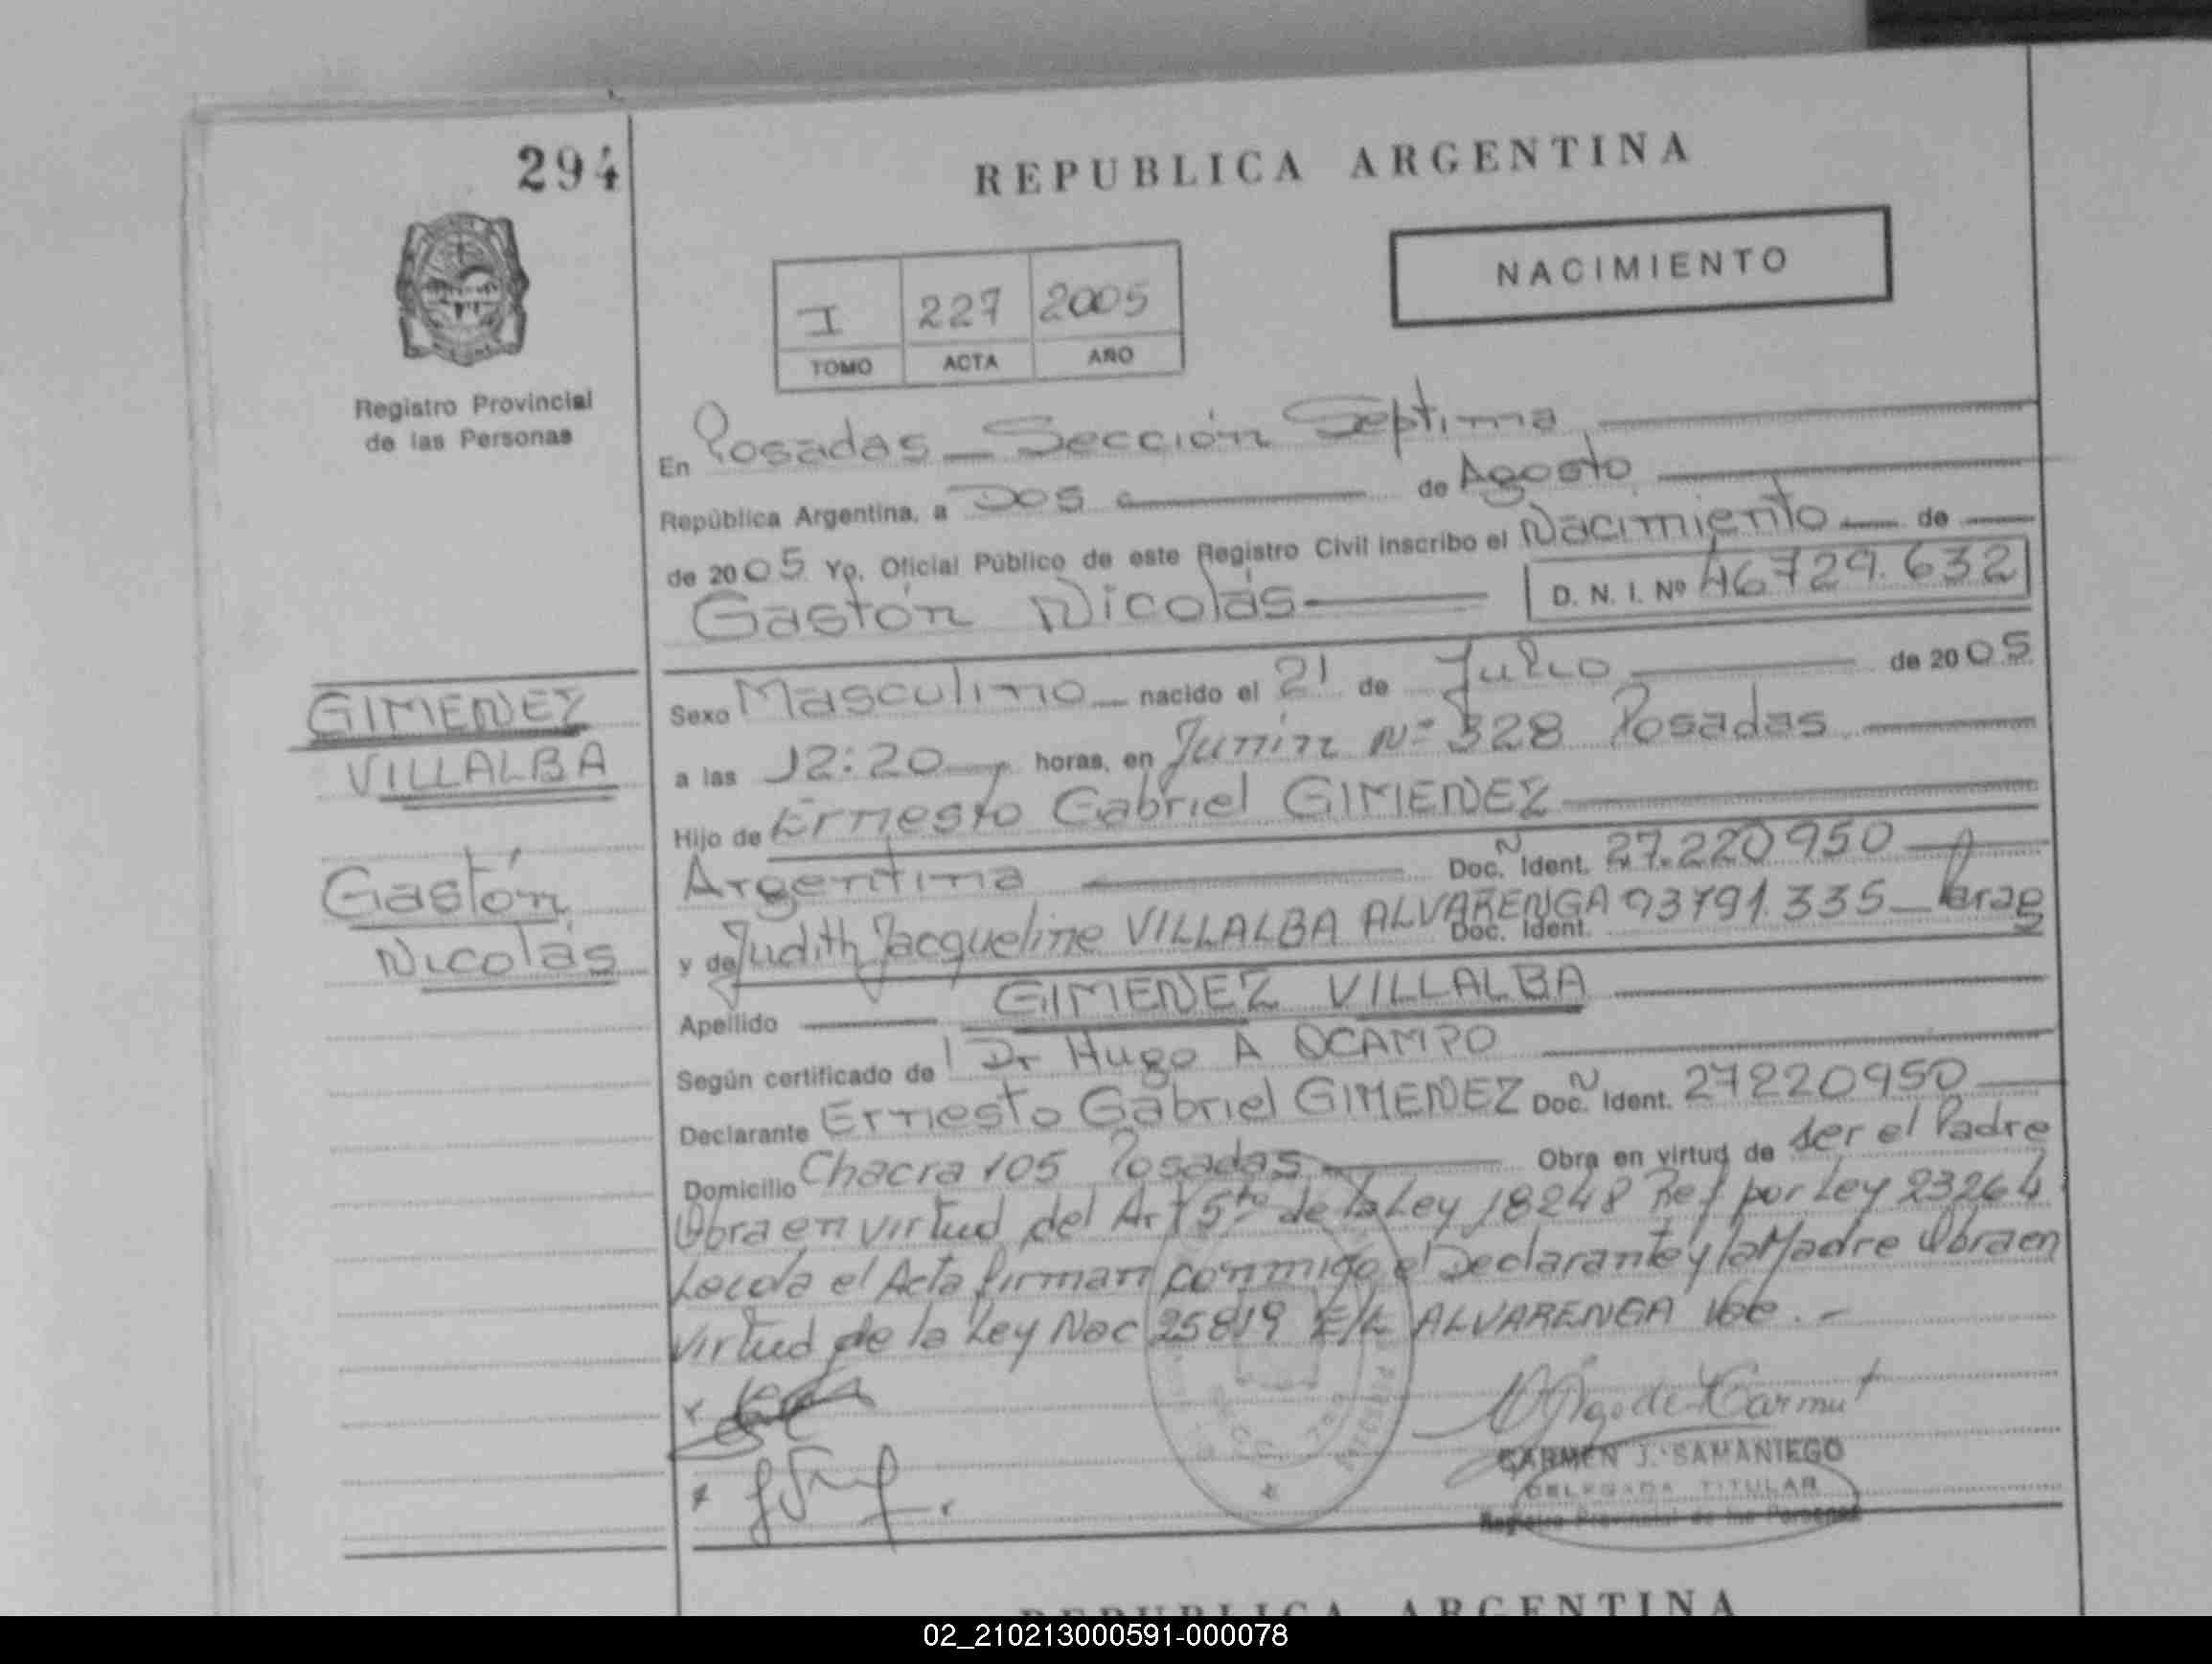 294
REPUBLICA ARGENTINA
NACIMIENTO
I 227 2005
TOMO ACTA AÑO
Registro Provincial
de las Personas
En Posadas - Sección Septima
República Argentina, a Dos de Agosto
de 2005 Yo, Oficial Público de este Registro Civil inscribo el Nacimiento de
Gastón Nicolás D. N. I. Nº 46729.632
GIMENEZ
VILLALBA
Gastón
Nicolás
Sexo Masculino nacido el 21 de Julio de 2005
a las 12:20 horas, en Junin Nº 328 Posadas
Hijo de Ernesto Gabriel GIMENEZ
Argentina Doc. N Ident. 27.220950
y de Judith Jacqueline VILLALBA ALVARENGA Doc. Ident. 93791.335 - Parag
Apellido GIMENEZ VILLALBA
Según certificado de Dr Hugo A OCAMPO
Declarante Ernesto Gabriel GIMENEZ Doc. N Ident. 27220950
Domicilio Chacra 105 Posadas Obra en virtud de ser el Padre
Obra en virtud del Art 5to de la Ley 18248 Ref por Ley 23264
Leida el Acta firman conmigo el Declarante y la Madre Obra en
virtud de la Ley Nac 25819 E/L ALVARENGA Vale.-
CARMEN J. SAMANIEGO
DELEGADA TITULAR
Registro Provincial de las Personas
REPUBLICA ARGENTINA
02_210213000591-000078